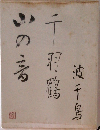 千羽鶴
波千鳥
山の音